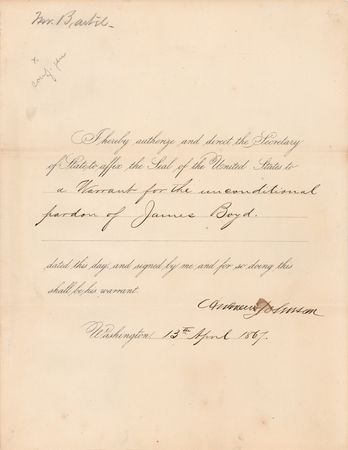 Mr. Bartle
x
I hereby authorize and direct the Secretary
of State to affix the Seal of the United States to
a Warrant for the unconditional
pardon of James Boyd.
dated this day, and signed by me, and for so doing this
shall be his warrant.
Andrew Johnson
Washington, 13th April 1867.